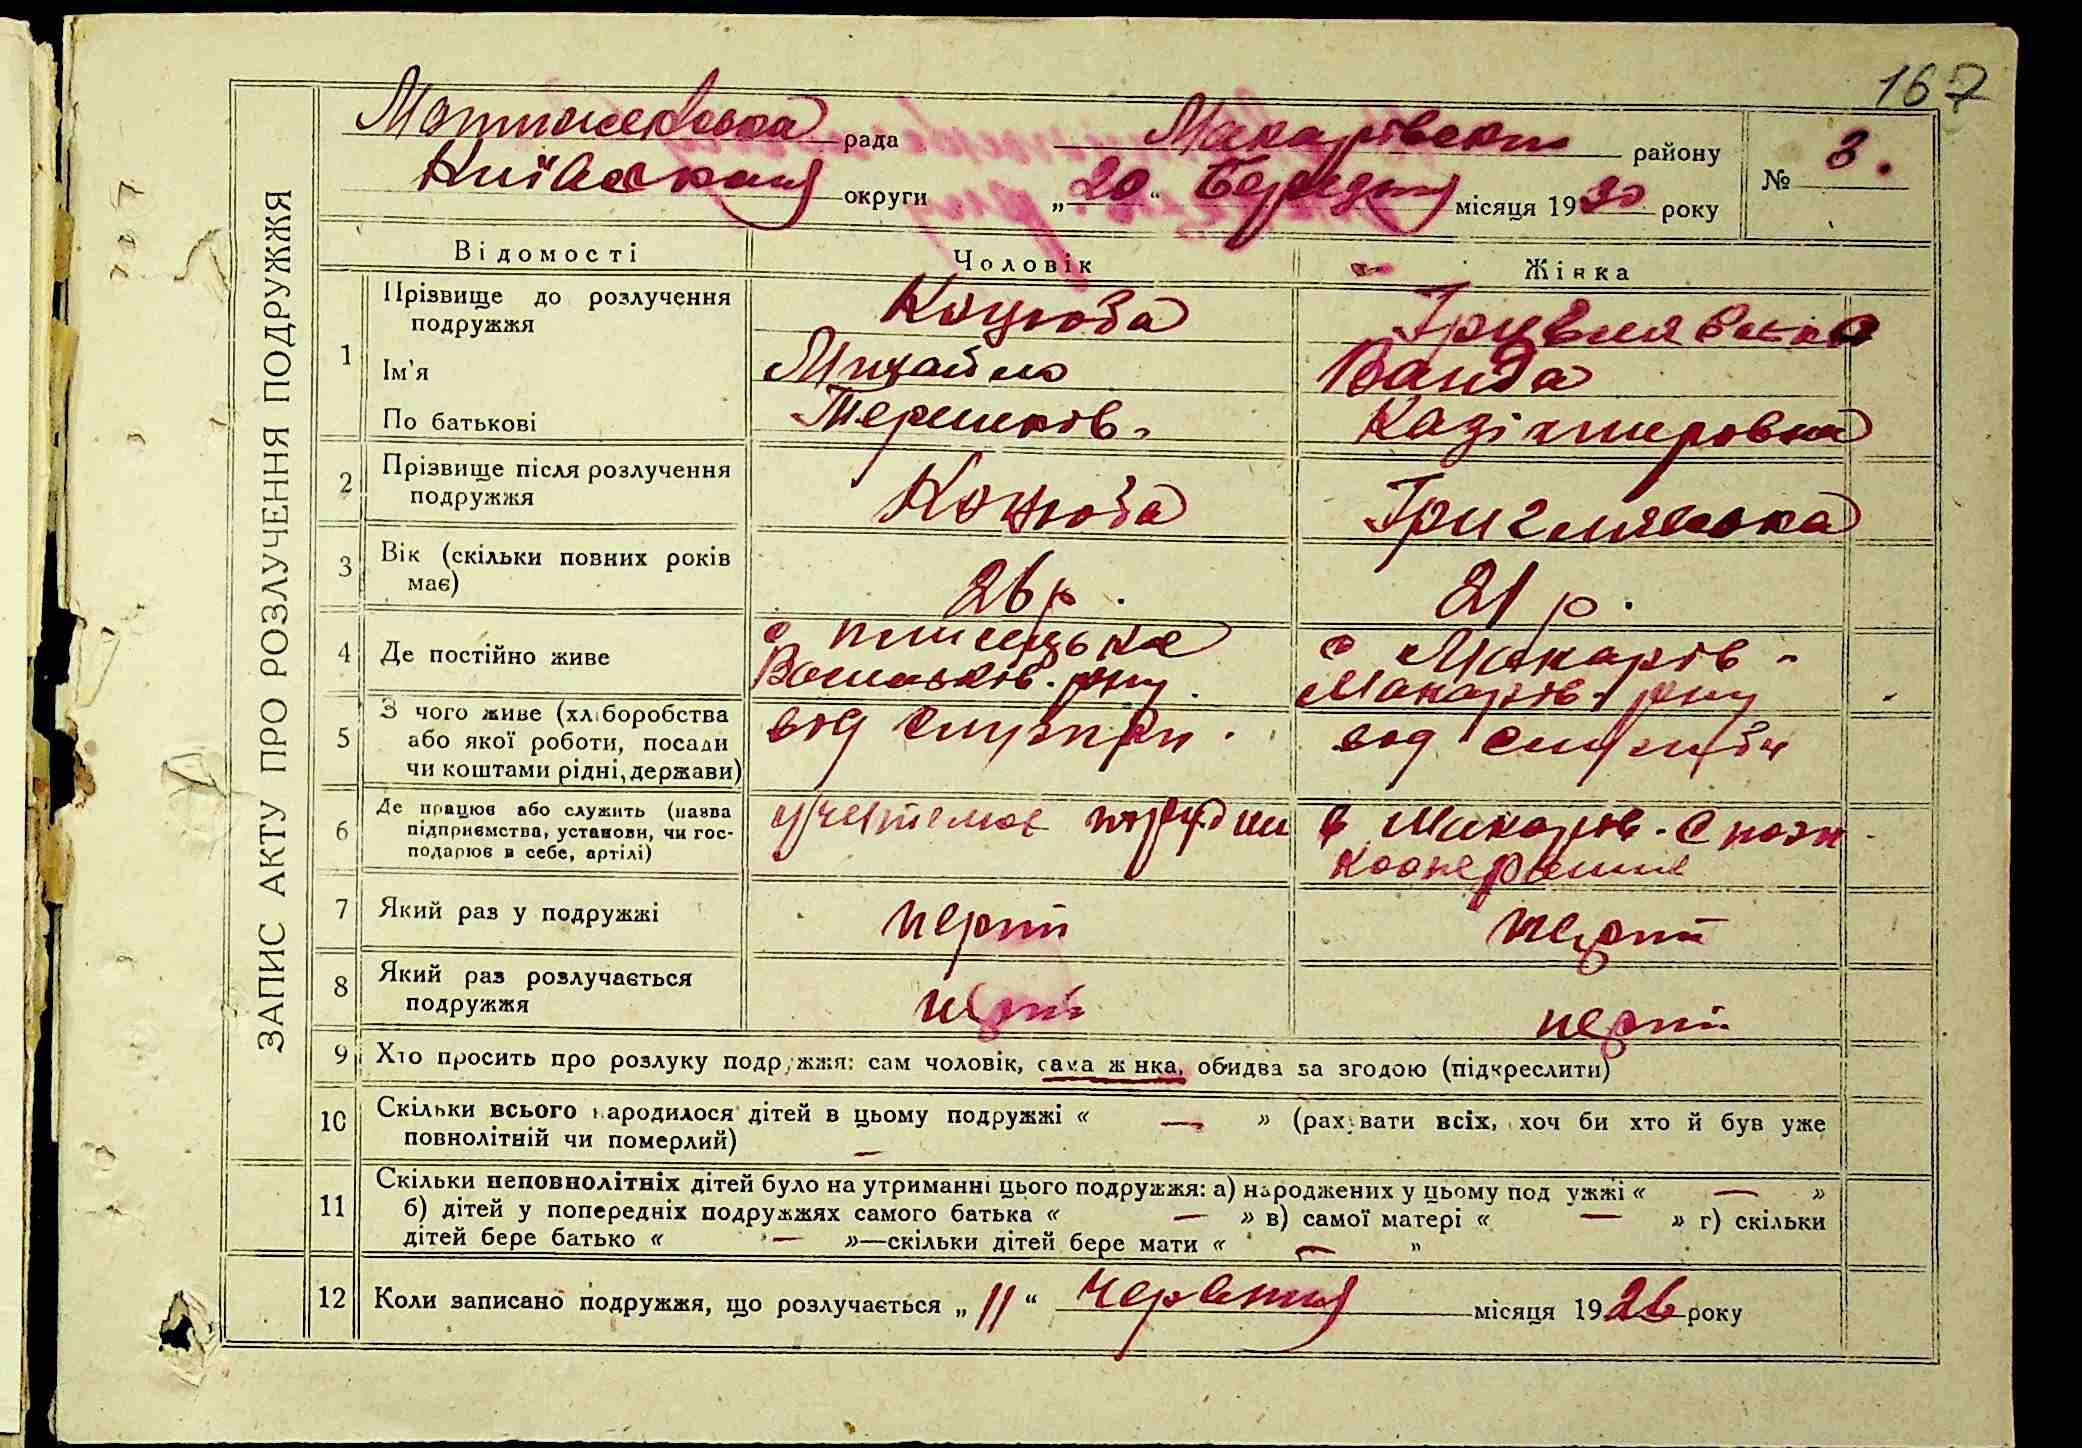 167
ЗАПИС АКТУ ПРО РОЗЛУЧЕННЯ ПОДРУЖЖЯ
рада Макарівськ району № 3.
Київськая округи „20“ Березня місяця 1930 року
Відомості Чоловік Жінка
1 Прізвище до розлучення Коцюба
подружжя
Ім'я Михайло Ванда
По батькові Терешков. Казімировна
2 Прізвище після розлучення Коцюба Григлявська
подружжя
3 Вік (скільки повних років 26 р. 21 р.
має)
4 Де постійно живе с Плисецьке с Макарів
Васильків. рну. Макарів. рну
5 З чого живе (хліборобства від служби від служби
або якої роботи, посади
чи коштами рідні, держави)
6 Де працює або служить (назва в Макарів.
підприємства, установи, чи гос-
подарює в себе, артілі)
7 Який раз у подружжі перший перший
8 Який раз розлучається перший перший
подружжя
9 Хто просить про розлуку подружжя: сам чоловік, сама жінка, обидва за згодою (підкреслити)
10 Скільки всього народилося дітей в цьому подружжі « — » (рахувати всіх, хоч би хто й був уже
повнолітній чи померлий) —
11 Скільки неповнолітніх дітей було на утриманні цього подружжя: а) народжених у цьому подружжі « — »
б) дітей у попередніх подружжях самого батька « — » в) самої матері « — » г) скільки
дітей бере батько « — »—скільки дітей бере мати « — "
12 Коли записано подружжя, що розлучається „11“ Червня місяця 1926 року